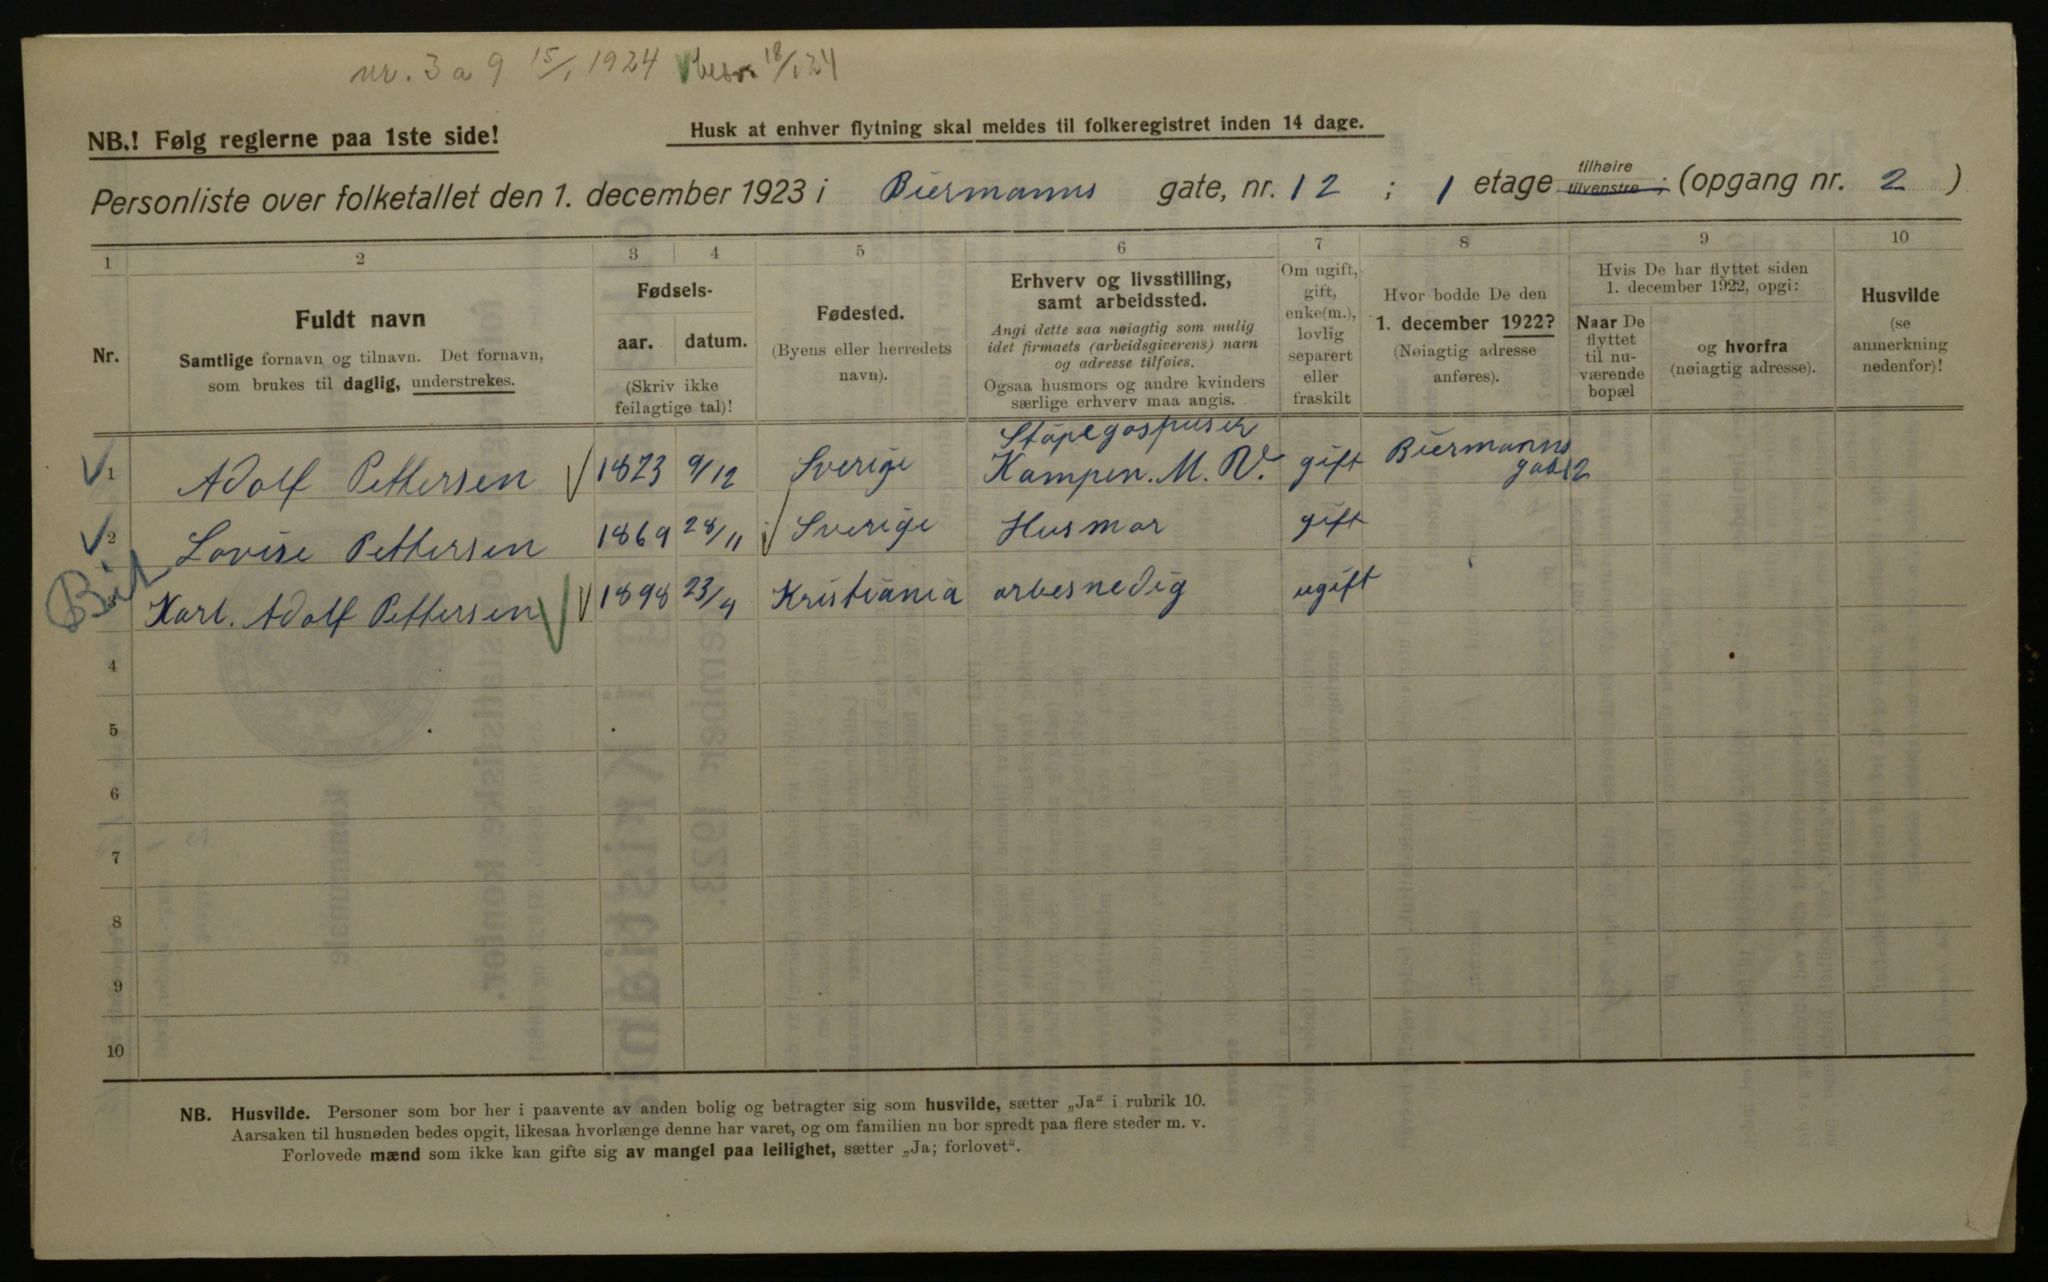 nr. 3 a 9 15/1 1924 besv. 18/1 24
NB.! Følg reglerne paa 1ste side!
Husk at enhver flytning skal meldes til folkeregistret inden 14 dage.
Personliste over folketallet den 1. december 1923 i Biermanns gate, nr. 12 ; 1 etage tilhøire tilvenstre ; (opgang nr. 2 )
1 2 3 4 5 6 7 8 9 10
Nr.
Fuldt navn
Samtlige fornavn og tilnavn. Det fornavn,
som brukes til daglig, understrekes.
Fødsels-
aar. datum.
(Skriv ikke
feilagtige tal)!
Fødested.
(Byens eller herredets
navn).
Erhverv og livsstilling,
samt arbeidssted.
Angi dette saa nøiagtig som mulig
idet firmaets (arbeidsgiverens) navn
og adresse tilføies.
Ogsaa husmors og andre kvinders
særlige erhverv maa angis.
Om ugift,
gift,
enke(m.),
lovlig
separert
eller
fraskilt
Hvor bodde De den
1. december 1922?
(Nøiagtig adresse
anføres).
Hvis De har flyttet siden
1. december 1922, opgi:
Naar De
flyttet
til nu-
værende
bopæl
og hvorfra
(nøiagtig adresse).
Husvilde
(se
anmerkning
nedenfor)!
Støpegospuser
1 Adolf Pettersen 1873 9/12 Sverige Kampen. M. V. gift Biermanns
gate 12
2 Lovise Pettersen 1869 28/11 Sverige Husmor gift
3 Karl. Adolf Pettersen 1898 23/4 Kristiania arbesnedig ugift
4
5
6
7
8
9
10
NB. Husvilde. Personer som bor her i paavente av anden bolig og betragter sig som husvilde, sætter „Ja“ i rubrik 10.
Aarsaken til husnøden bedes opgit, likesaa hvorlænge denne har varet, og om familien nu bor spredt paa flere steder m. v.
Forlovede mænd som ikke kan gifte sig av mangel paa leilighet, sætter „Ja; forlovet“.